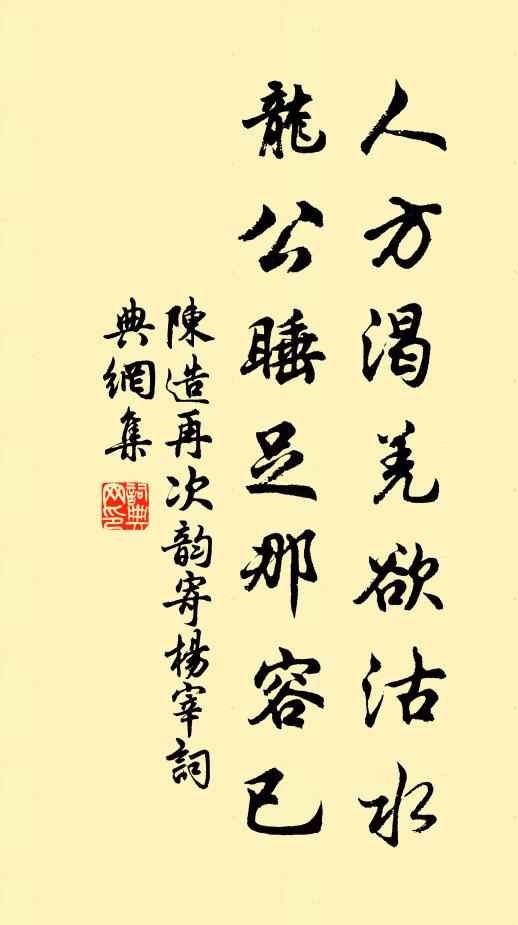 人方渴羌欲沽水
龍公睡足那容已
陳造再次韵寄楊宰詞
典網集
詞典
网印